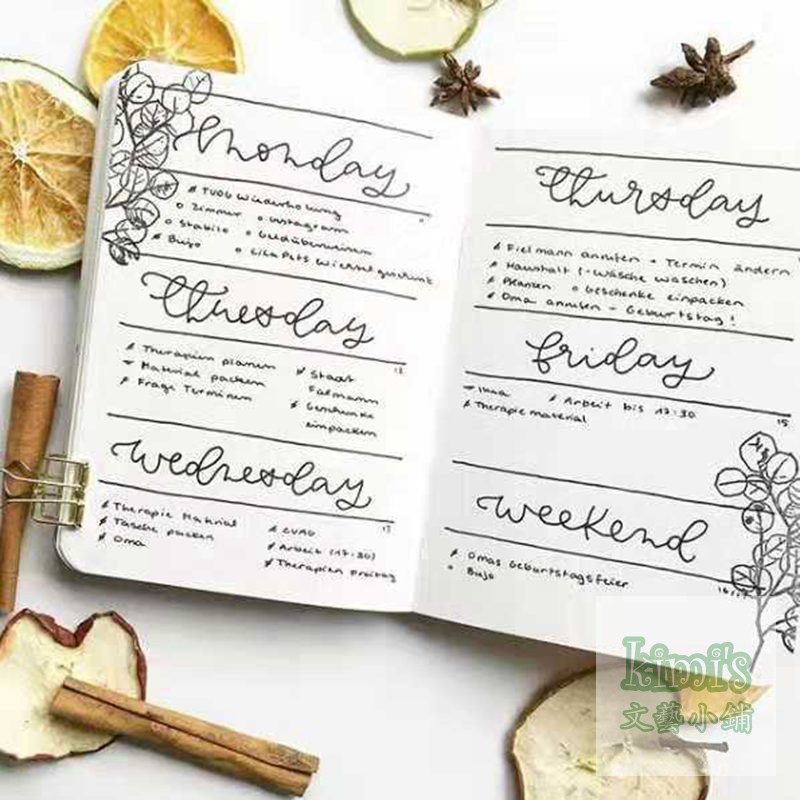 Monday
TVÖG Wiederholung
Zimmer Instagram
Stabilo Geld überweisen
Bujo Wichtelgeschenk
Tuesday
12
Therapien planen Stadt
Material packen Fielmann
Frage Terminen Geschenke
einpacken
Wednesday
13
Therapie Material
Tasche packen Arbeit (17:30)
Oma Therapien Freitag
Thursday
Fielmann anrufen + Termin ändern
Haushalt (-Wäsche waschen)
Pflanzen Geschenke einpacken
Oma anrufen - Geburtstag!
Friday
15
Arbeit bis 17:30
Therapiematerial
Weekend
16/17
Omas Geburtstagsfeier
Bujo
kimi's
文藝小鋪